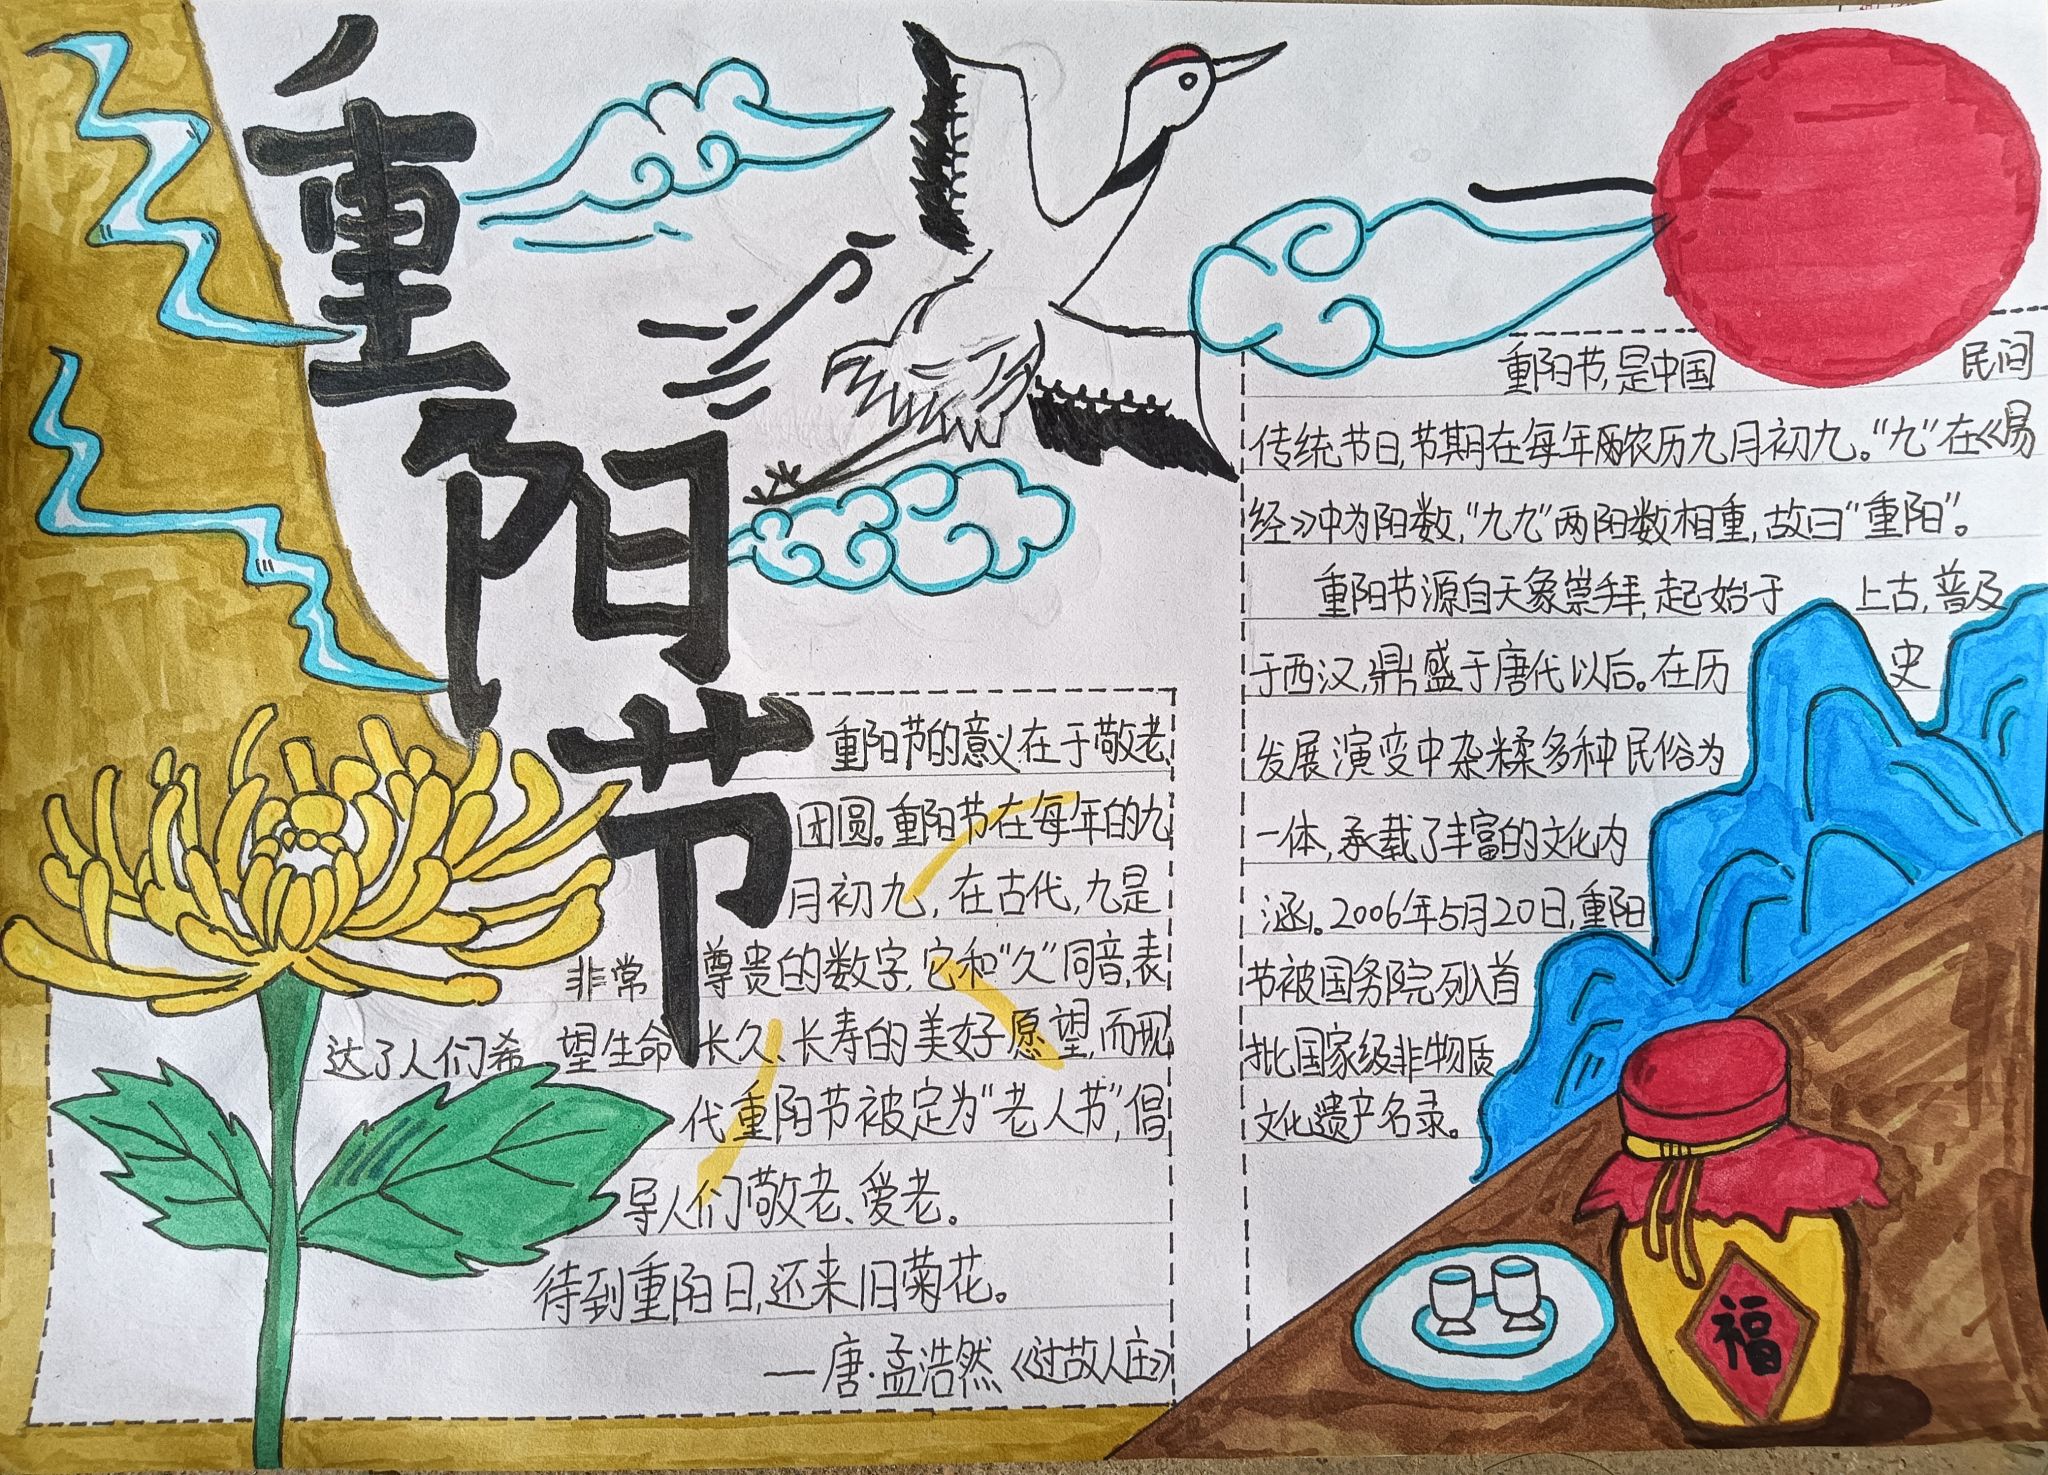 重阳节
重阳节的意义在于敬老
团圆。重阳节在每年的九
月初九，在古代，九是
非常尊贵的数字，它和“久”同音，表
达了人们希望生命长久、长寿的美好愿望，而现
代重阳节被定为“老人节”，倡
导人们敬老、爱老。
待到重阳日，还来旧菊花。
—唐·孟浩然《过故人庄》
重阳节，是中国民间
传统节日，节期在每年农历九月初九。“九”在《易
经》中为阳数，“九九”两阳数相重，故曰“重阳”。
重阳节源自天象崇拜，起始于上古，普及
于西汉，鼎盛于唐代以后。在历史
发展演变中杂糅多种民俗为
一体，承载了丰富的文化内
涵。2006年5月20日，重阳
节被国务院列入首
批国家级非物质
文化遗产名录。
福